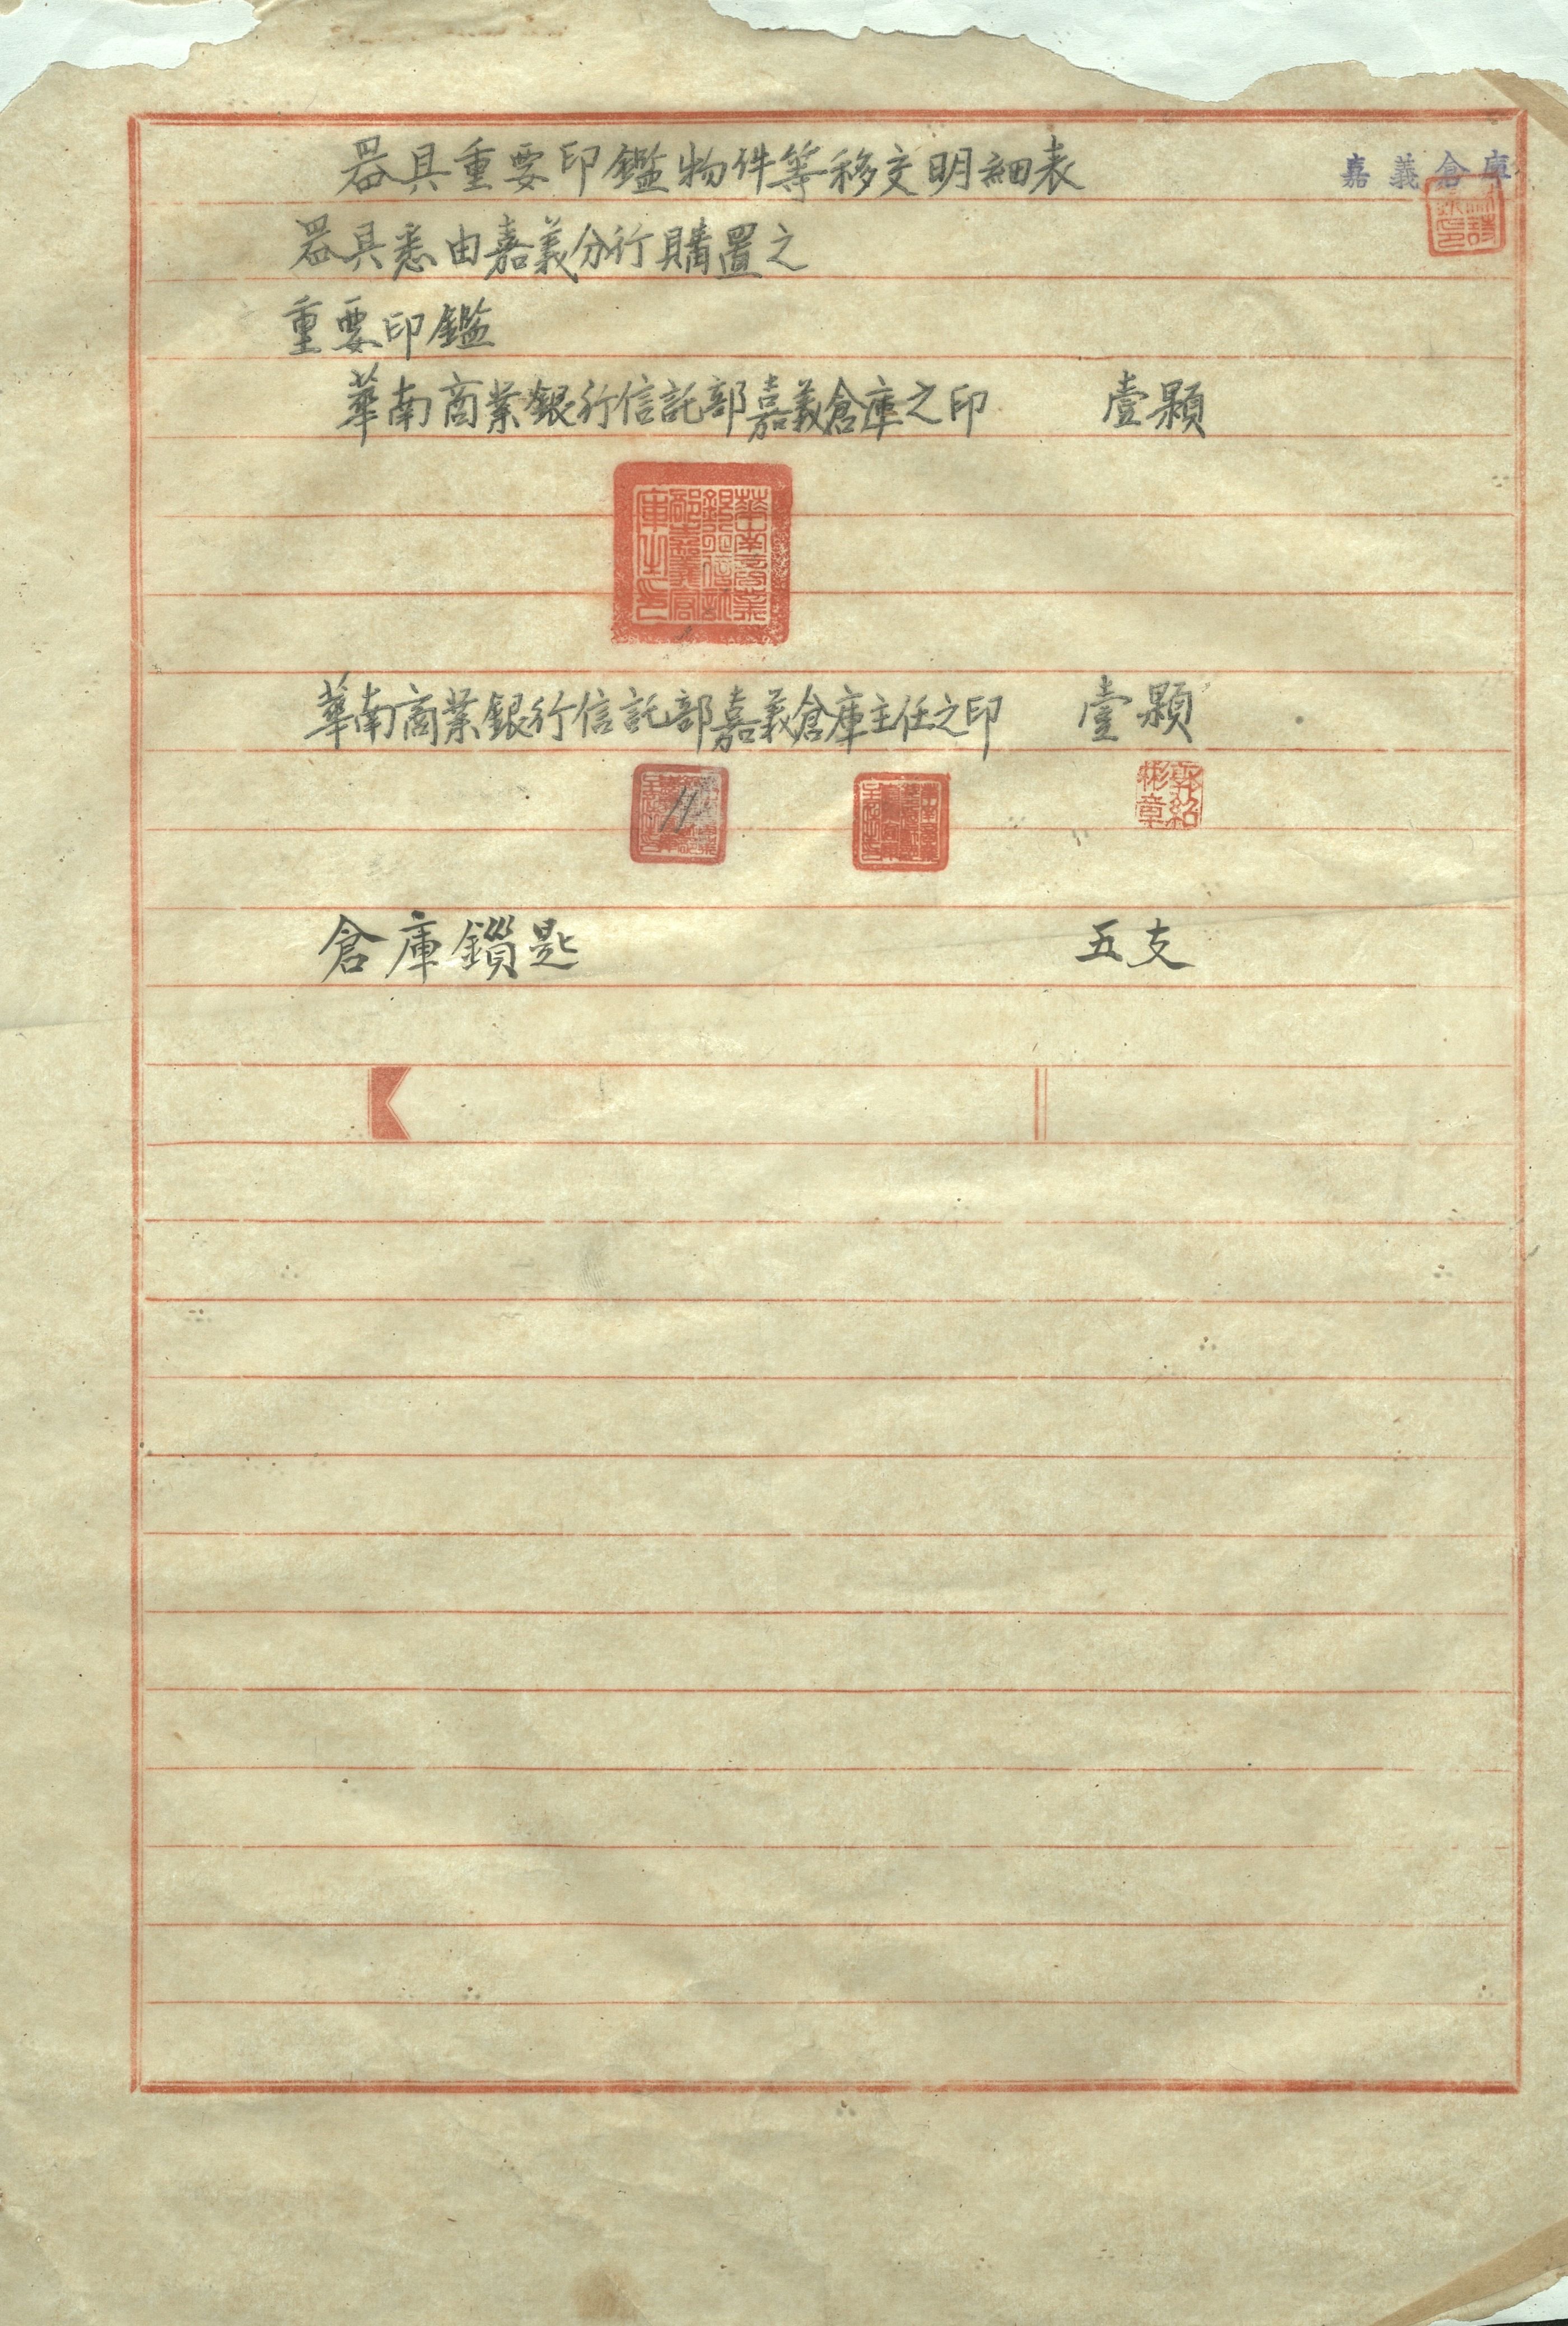 器具重要印鑑物件等移交明細表
嘉義倉庫
器具悉由嘉義分行購置之
重要印鑑
華南商業銀行信託部嘉義倉庫之印 壹顆
華南商業銀行信託部嘉義倉庫之印
華南商業銀行信託部嘉義倉庫主任之印 壹顆
倉庫鎖匙 五支